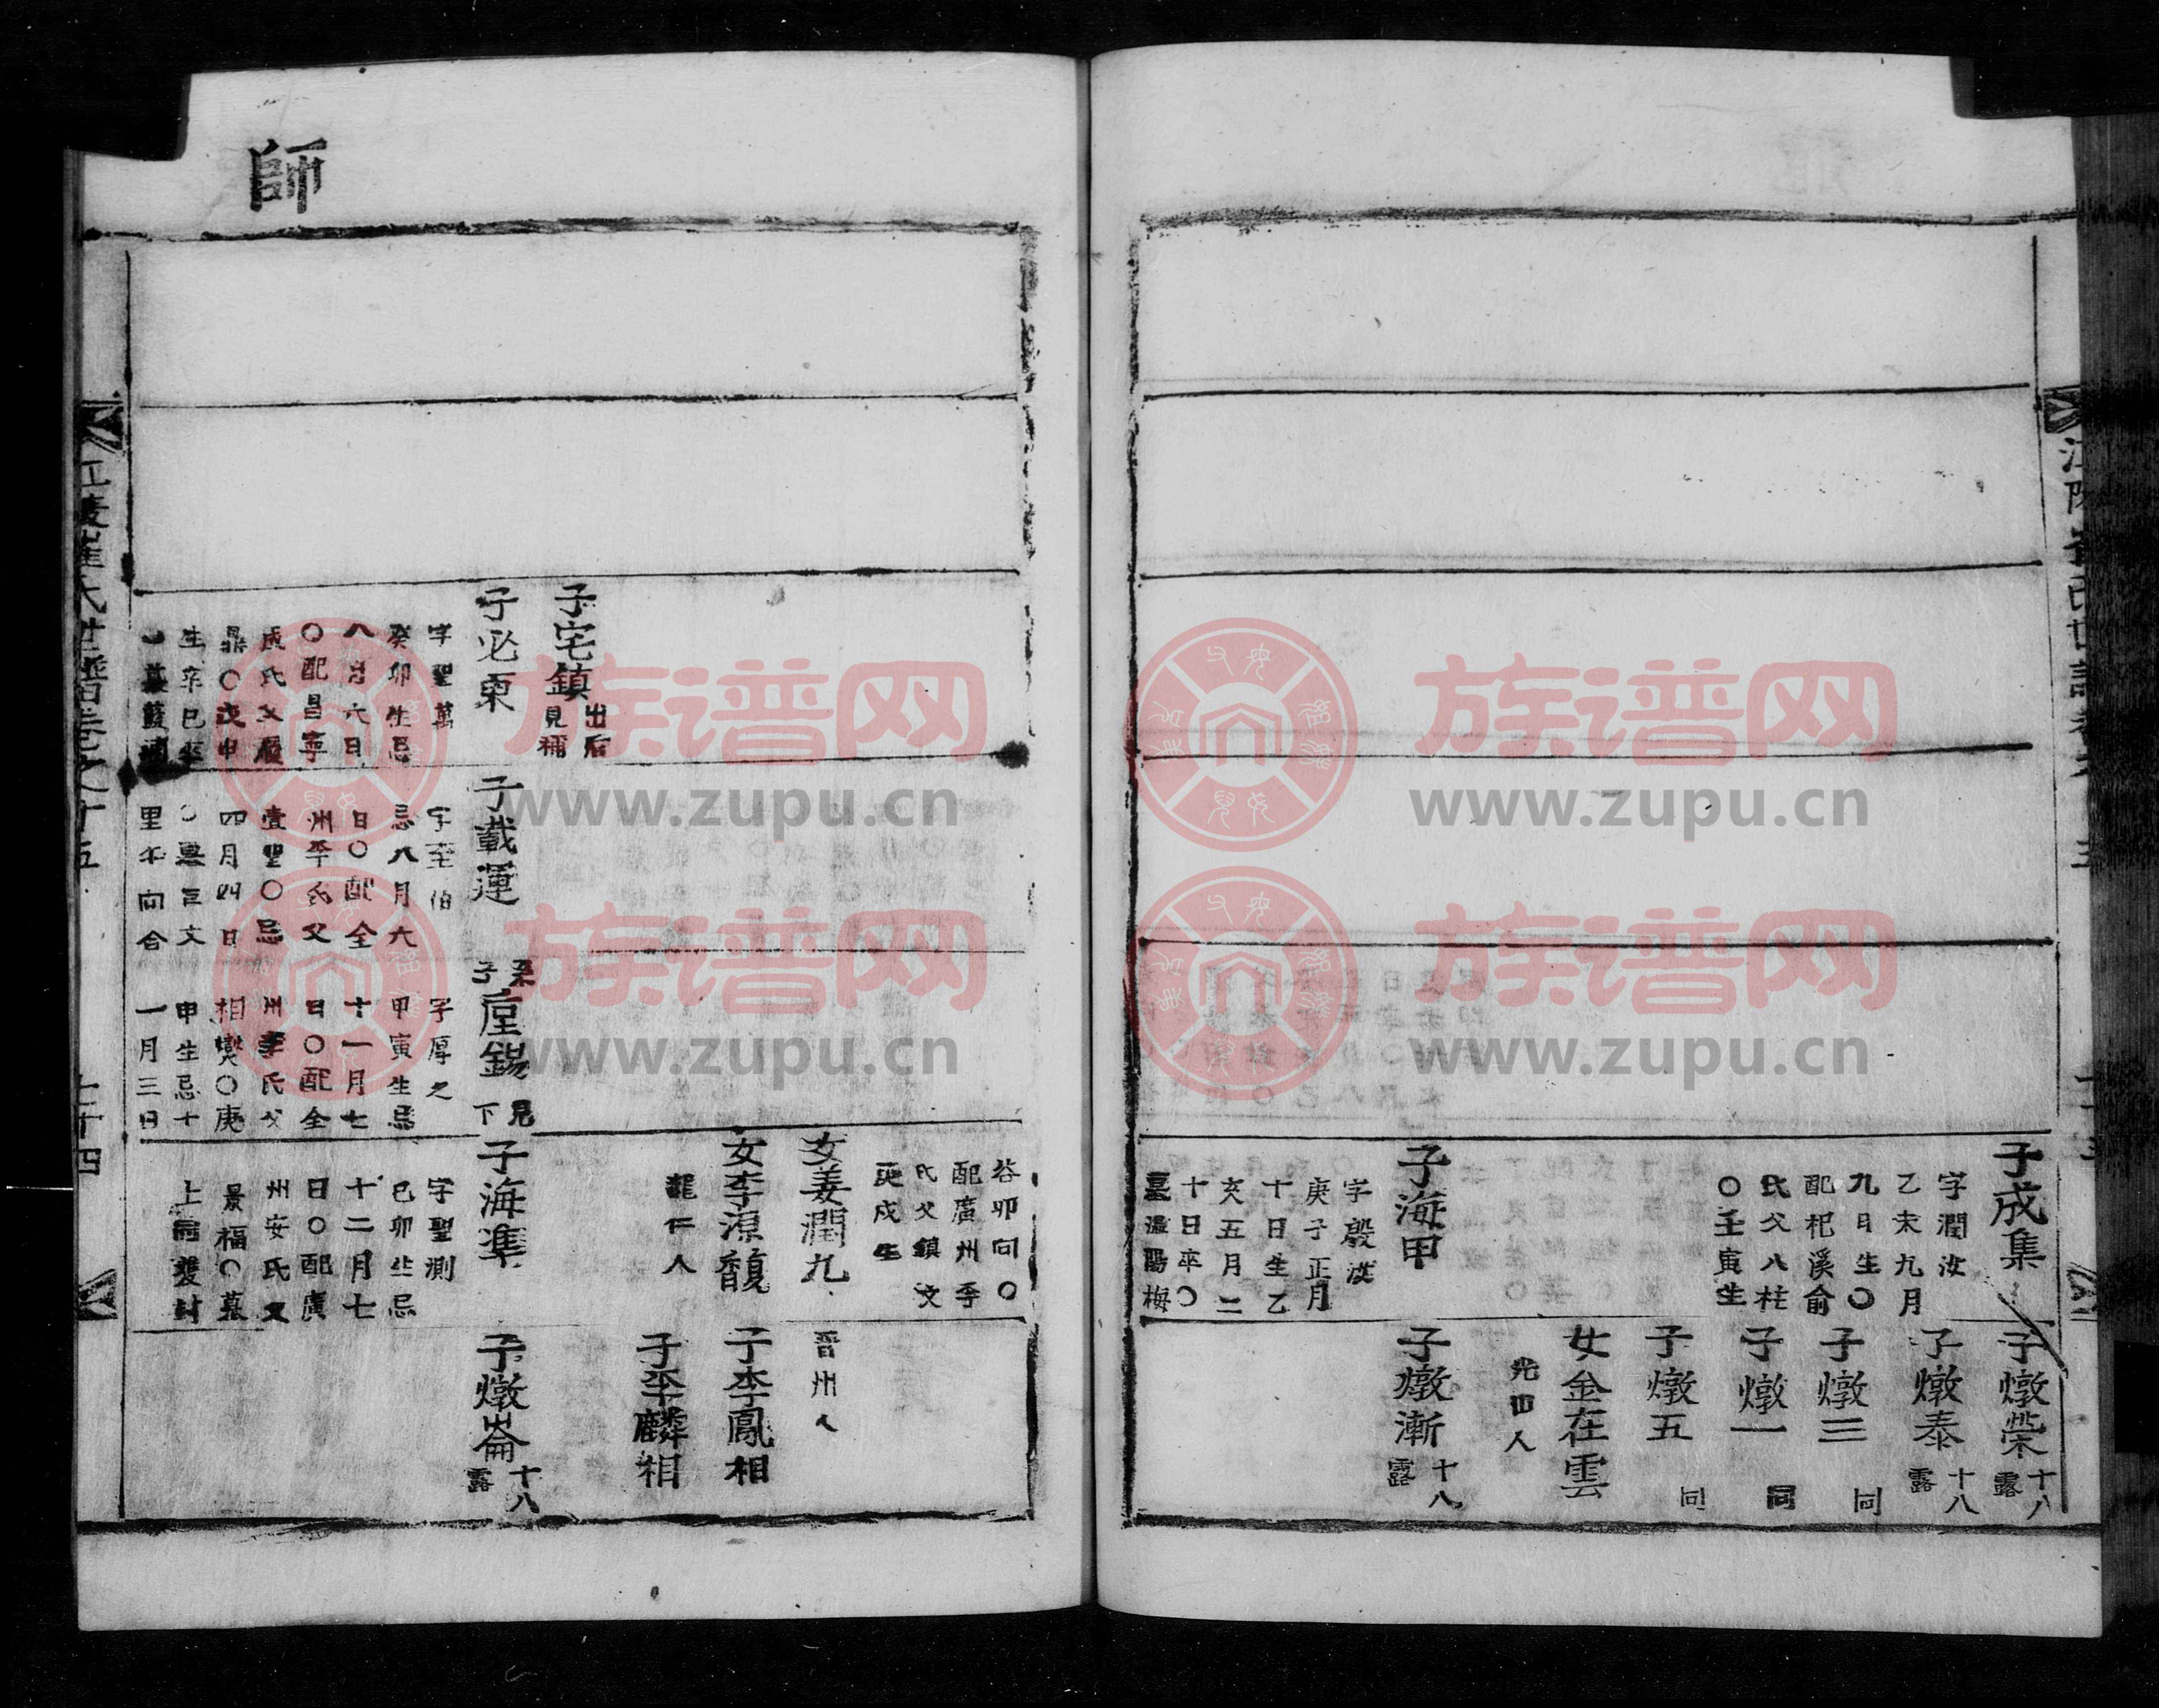 子成集
字潤汝
乙未九月
九日生〇
配杞溪俞
氏父八柱
〇壬寅生
子海甲
字殷汝
庚子正月
十日生乙
亥五月二
十日卒〇
墓溫陽梅
子燉榮 十八 露
子燉泰 十八 露
子燉三 同
子燉一 同
子燉五 同
女金在雲
光山人
子燉漸 十八 露
師
子宅鎮 出后 見補
子必東
字聖萬
癸卯生忌
八月六日
〇配昌寧
成氏父履
鼎〇戊申
生卒巳卒
子載運
字至伯
忌八月六
日〇配全
州李氏父
壹聖〇忌
四月四日
〇墓巨文
里午向合
系子垕錫 見下
字厚之
甲寅生忌
十一月七
日〇配全
州李氏父
相燮〇庚
申生忌十
一月三日
谷卯向〇
配廣州李
氏父鎮汶
庚戌生
女姜潤九
女李源馥
龍仁人
子海準
字聖測
己卯生忌
十二月七
日〇配廣
州安氏父
景福〇墓
上同雙封
晋州人
子李鳳相
子李麟相
子燉崙 十八 露
江陵崔氏世譜卷之十五
七十四
族谱网
www.zupu.cn
族谱网
www.zupu.cn
族谱网
www.zupu.cn
族谱网
www.zupu.cn